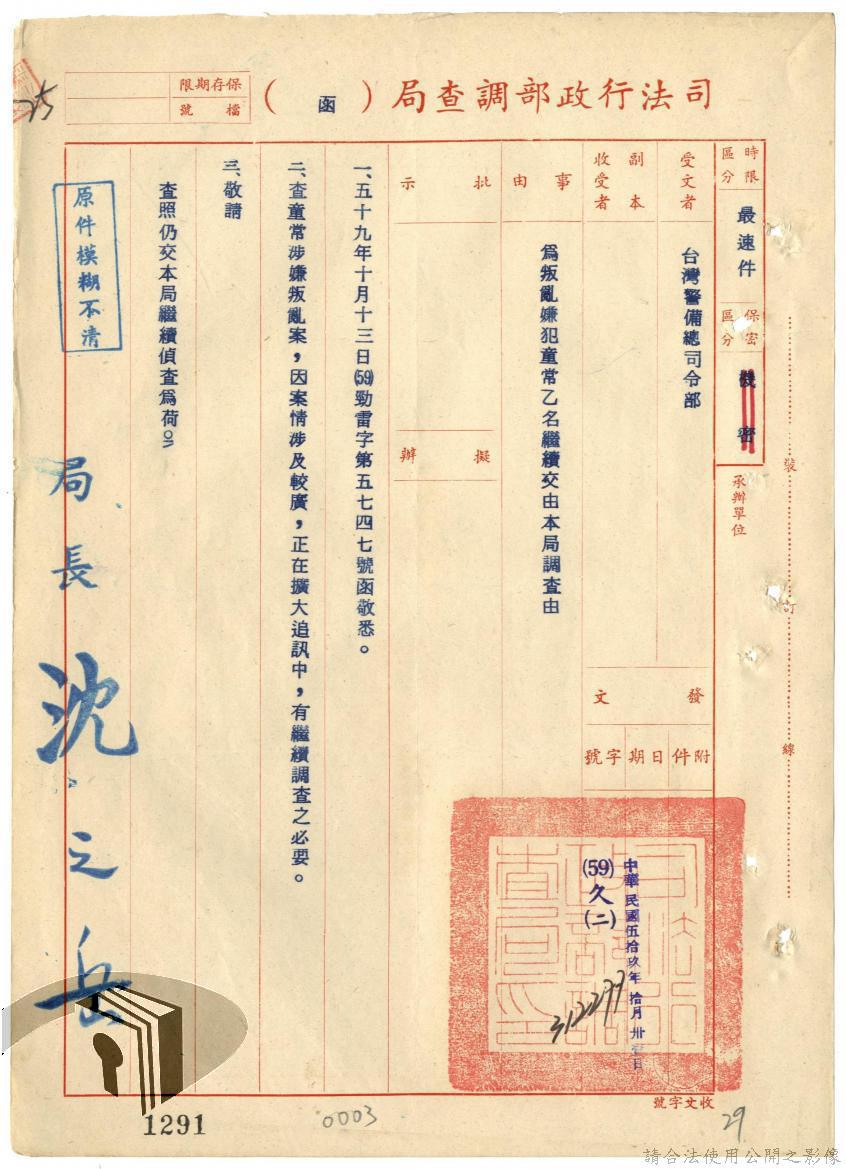 司法行政部調查局（函）
保存期限
檔號
時限區分
最速件
保密區分
機密
承辦單位
受文者
台灣警備總司令部
副本收受者
發文
附件
日期
字號
中華民國伍拾玖年拾月卅壹日
(59)久(二)
312277
事由
為叛亂嫌犯童常乙名繼續交由本局調查由
批示
擬辦
一、五十九年十月十三日(59)勁雷字第五七四七號函敬悉。
二、查童常涉嫌叛亂案，因案情涉及較廣，正在擴大追訊中，有繼續調查之必要。
三、敬請
查照仍交本局繼續偵查為荷。
局長沈之岳
原件模糊不清
裝訂線
收文字號
1291
0003
29
請合法使用公開之影像